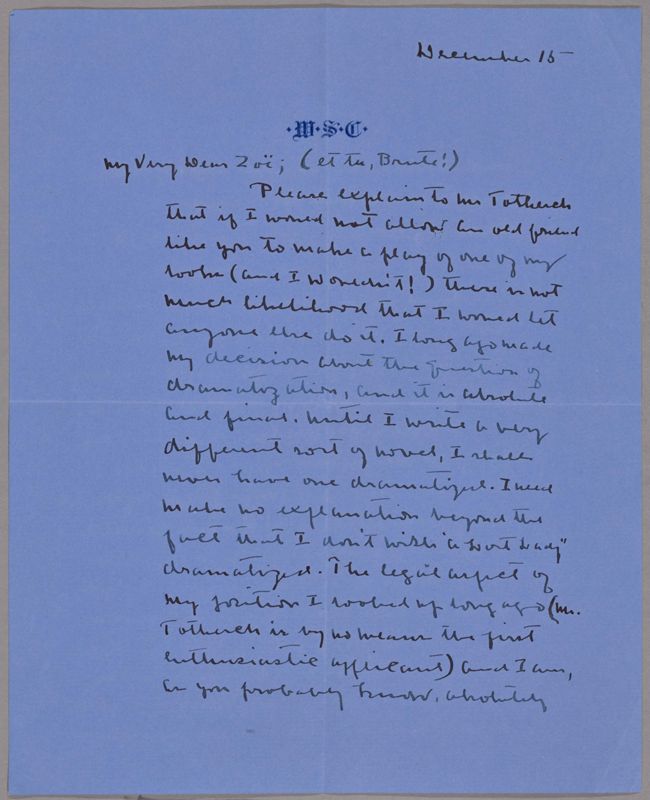 December 15
·W·S·C·
My Very Dear Zoë; (et tu, Brute!)
Please explain to Mr Totheroh
that if I would not allow an old friend
like you to make a play of one of my
books (and I wouldn't!) there is not
much likelihood that I would let
anyone else do it. I long ago made
my decision about the question of
dramatization, and it is absolute
and final. Until I write a very
different sort of novel, I shall
never have one dramatized. I need
make no explanation beyond the
fact that I don't wish "a Lost Lady"
dramatized. The legal aspect of
my position I looked up long ago (Mr.
Totheroh is by no means the first
enthusiastic applicant) and I am,
as you probably know, absolutely